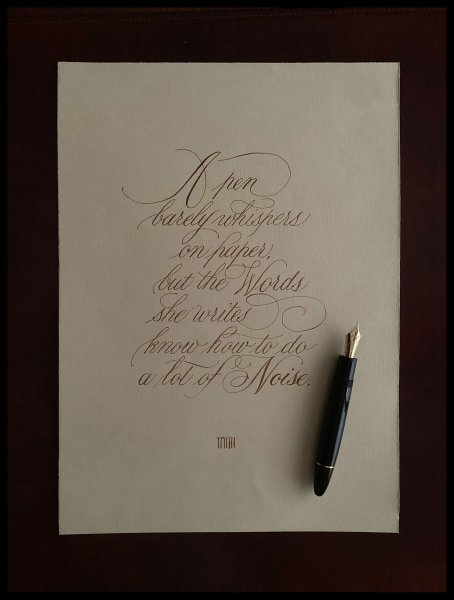 A pen
barely whispers
on paper,
but the Words
she writes
know how to do
a lot of Noise.